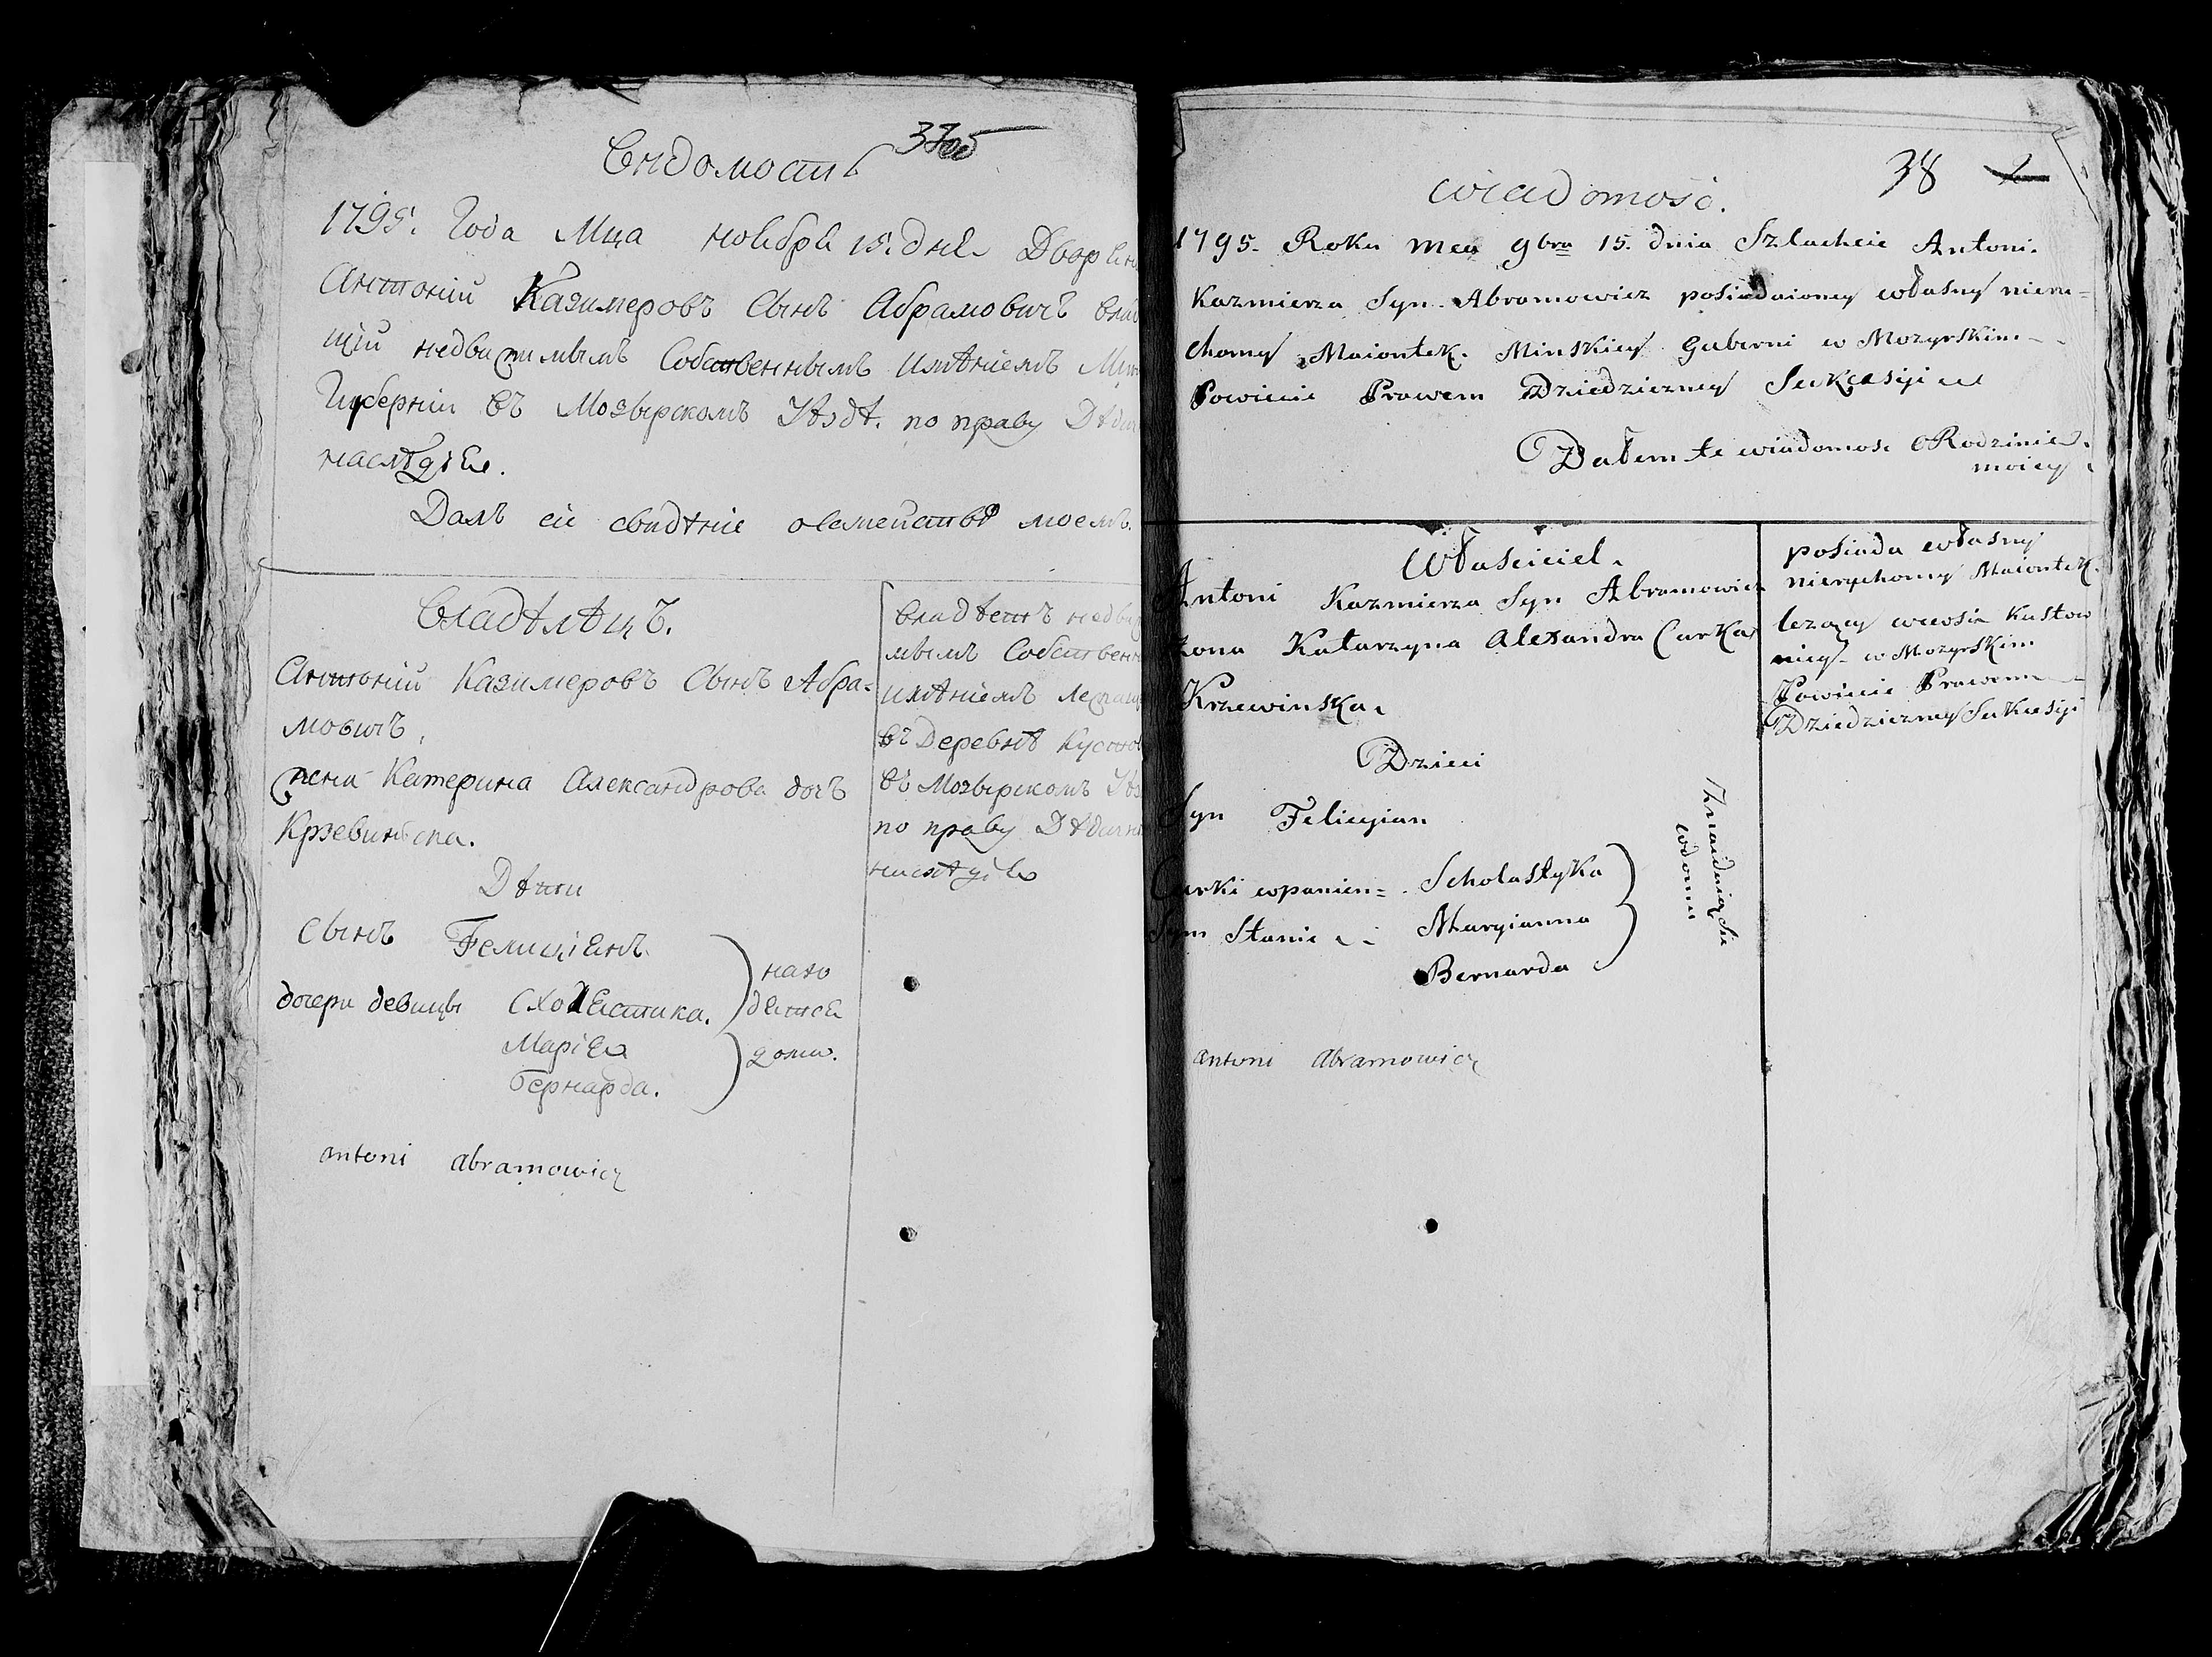 Вѣдомость
1795. Года Мца ноября 15. дня Дворян
Антоній Казимеровъ Сынъ Абрамовичъ влад
щій недвижимымъ Собственнымъ имѣніемъ Мин
Губерніи въ Мозырскомъ Уѣздѣ. по праву Дѣдич
наслѣдія.
Далъ сіе свидѣніе о семействѣ моемъ.
Владѣлѣцъ.
Антоній Казимеровъ Сынъ Абра-
мовичъ,
жена Катерина Александрова дочъ
Крзевиньска.
Дѣти
Сынъ Фелиціянъ.
дочери девицы Схолястика.
Марія
Бернарда.
нахо
дятся
дома.
antoni abramowicz
владѣетъ недви
мымъ Собственн
имѣніемъ Лежащ
въ Деревнѣ Кустов
въ Мозырскомъ Уѣз
по праву Дѣдичн
наслѣдія
38
wiadomosc.
1795. Roku mca 9bra 15. dnia Szlachcic Antoni.
Kazmierza Syn Abramowicz posiadaioncy własny nieru=
chomy Maiontek. Minskiey Guberni w Mozyrskim
Powiecie Prawem Dziedziczney Sukcesiji
Dałem te wiadomosc o Rodzinie
moiey
Własciciel.
Antoni Kazmierza Syn Abramowicz
zona Katarzyna Alexandra Curka
Krzewinska.
Dzieci
Syn Felicyian
Curki wpanien= Scholastyka
Sym Stanie Maryianna
Bernarda
Znaiduią Sie
wdomu
antoni abramowicz
posiada własny
nieruchomy Maiontek.
lezący wewsi Kustow
niey w Mozyrskim
Powiecie Prawem
Dziedziczney Sukcesiji